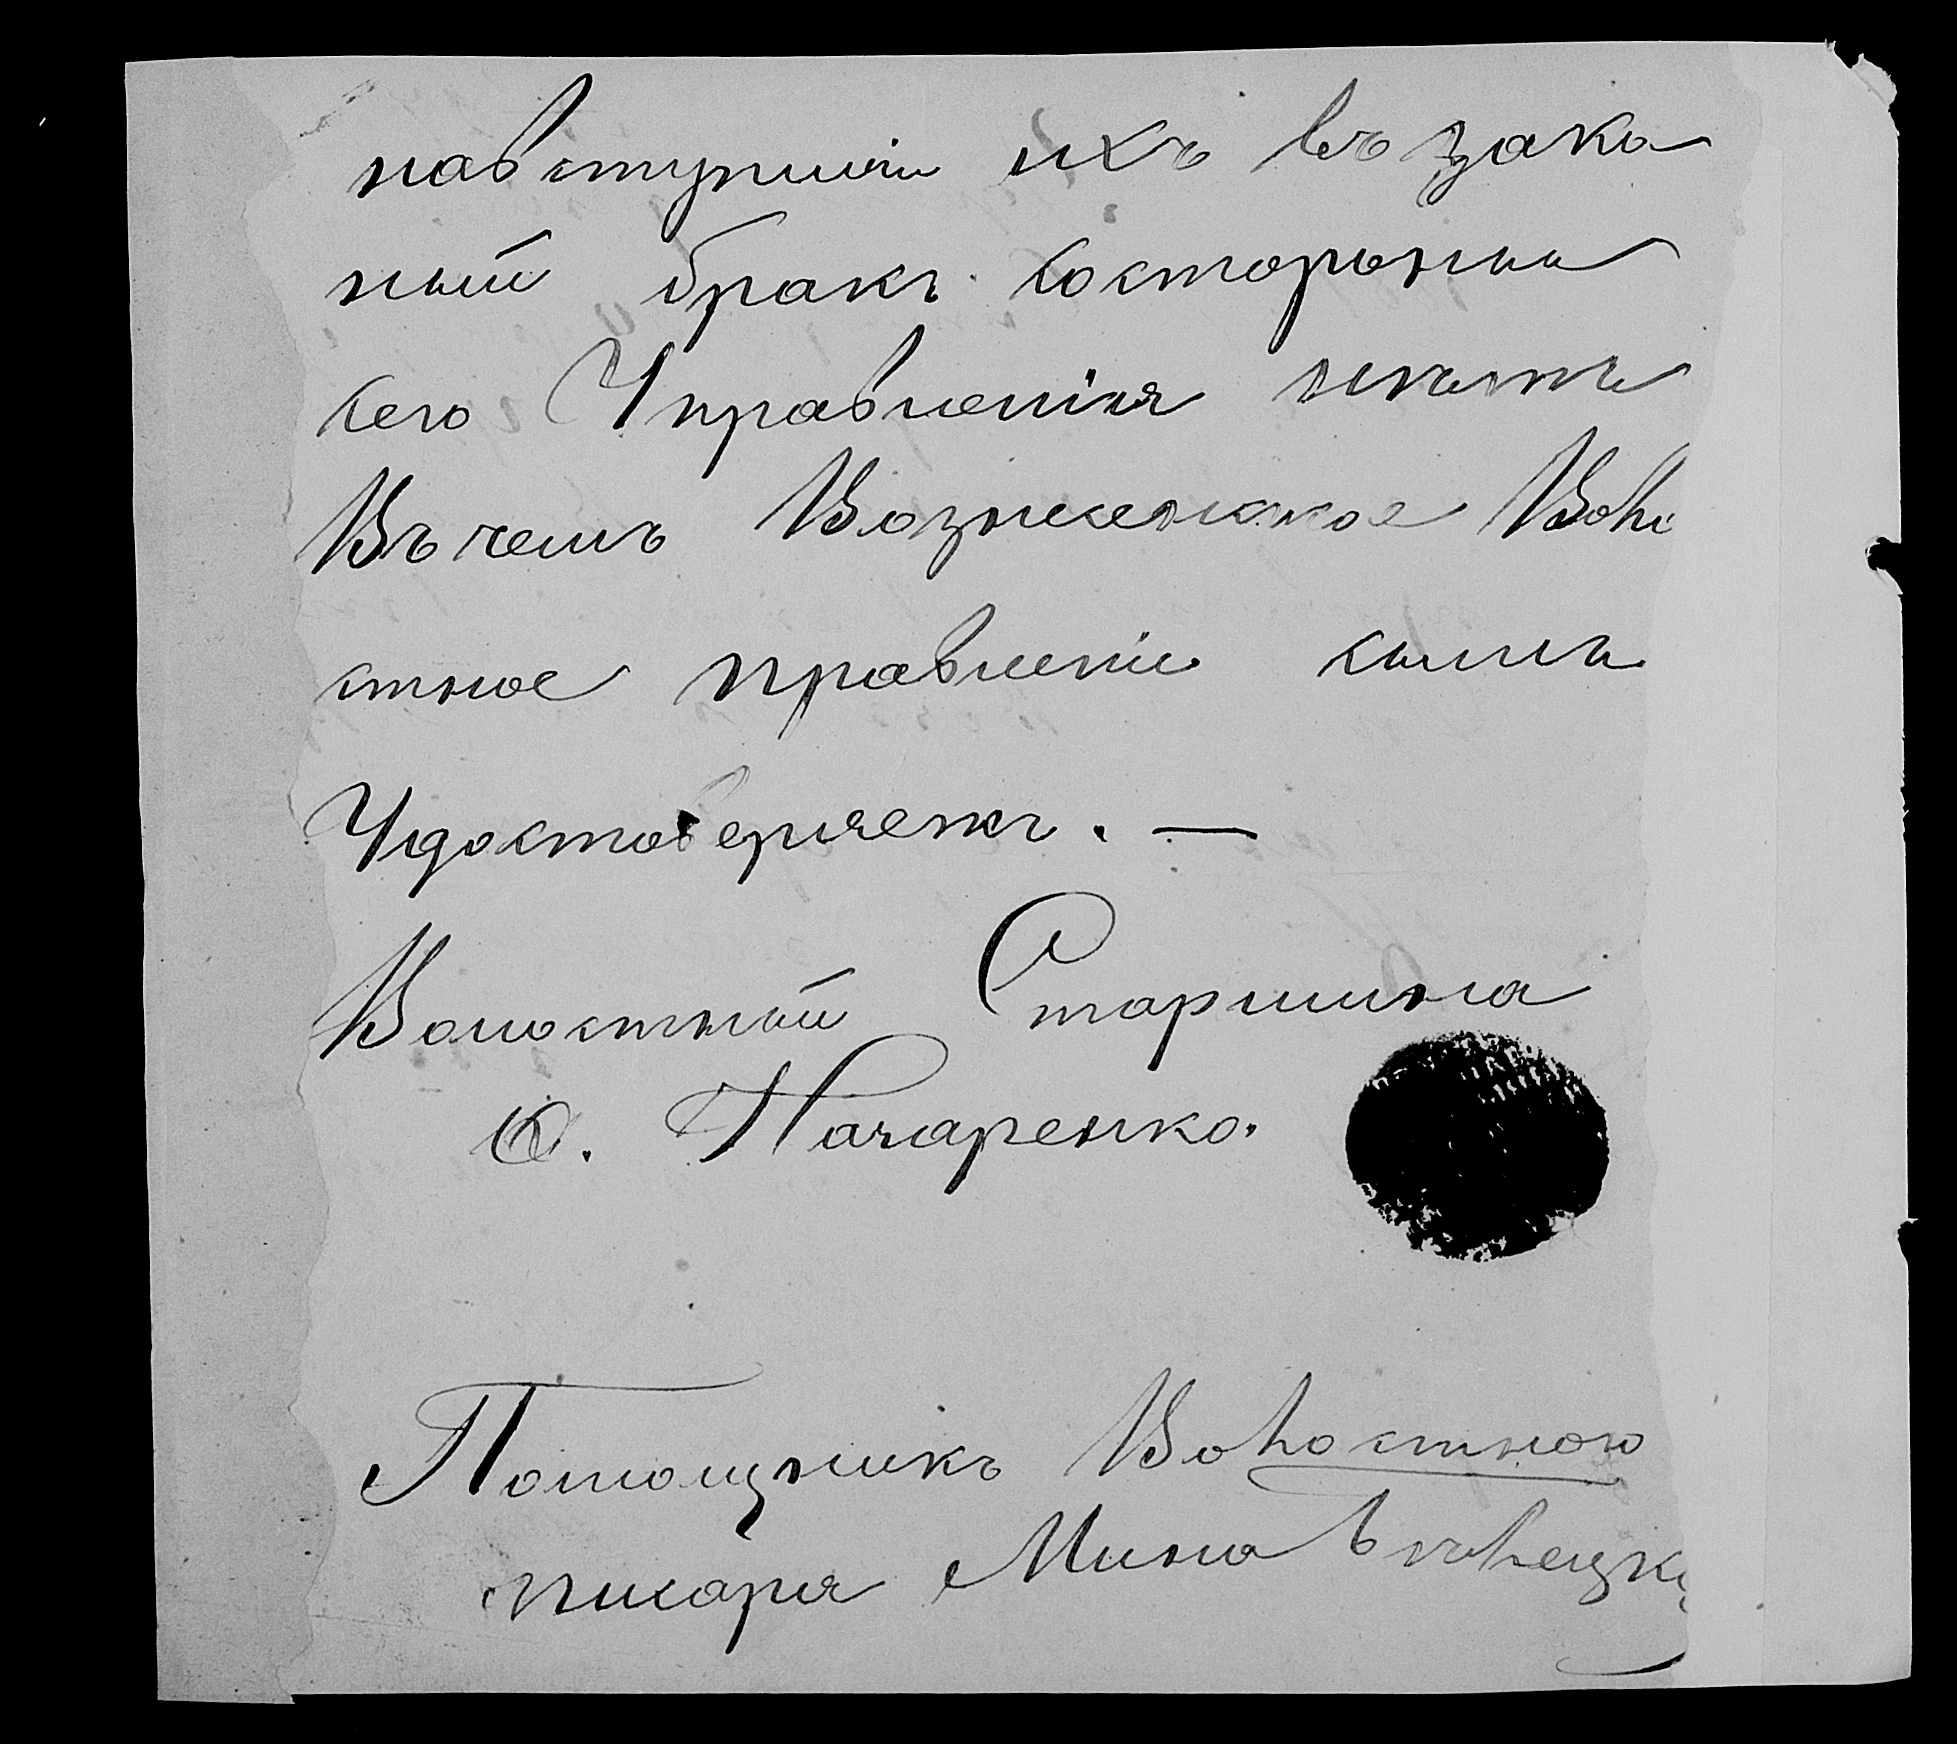 навступленіи ихъ въ зако
ный бракъ состороны
сего Управленія нетъ
Въ чемъ Вознесенское Воло
стное правленіе симъ
Удостоверяетъ. —
Волостный Старшина
Ѳ. Начаренко.
Помощникъ Волостного
писаря Мина